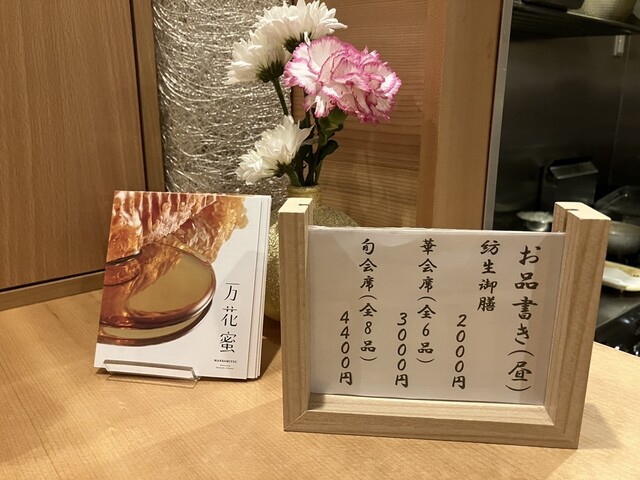 お品書き(昼)
紡生御膳
2000円
華会席(全6品)
3000円
旬会席(全8品)
4400円
万花蜜